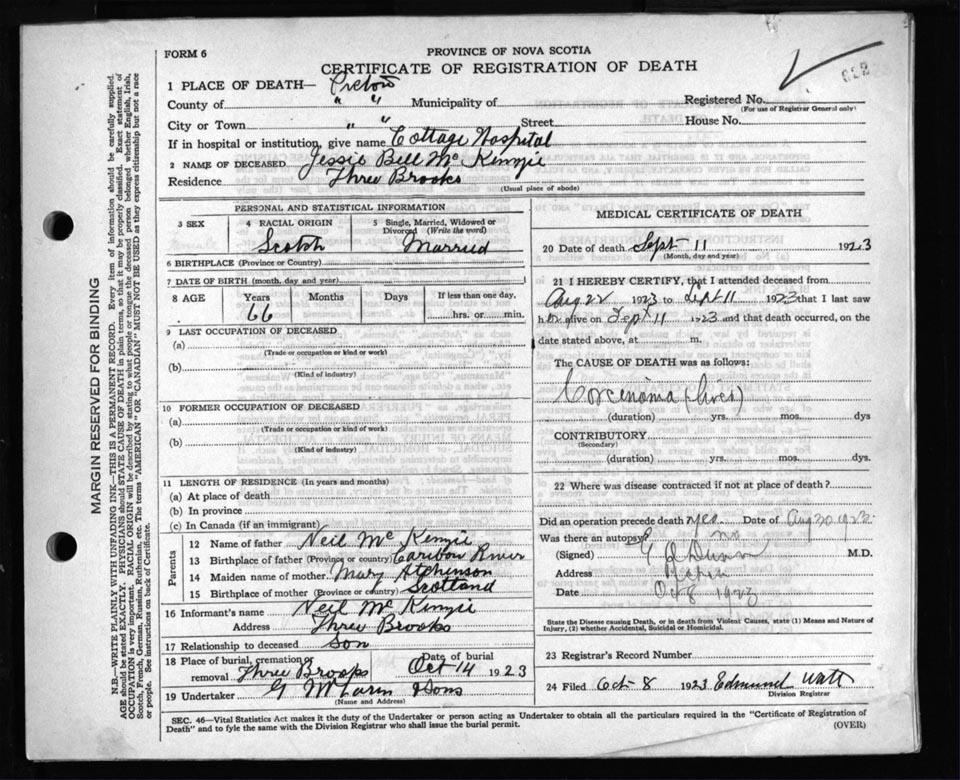 FORM 6
PROVINCE OF NOVA SCOTIA
CERTIFICATE OF REGISTRATION OF DEATH
1 PLACE OF DEATH— Pictou
County of " " Municipality of Registered No.
(For use of Registrar General only)
City or Town " " Street House No.
If in hospital or institution, give name Cottage Hospital
2 NAME OF DECEASED Jessie Bell McKenzie
Residence Three Brooks
(Usual place of abode)
PERSONAL AND STATISTICAL INFORMATION
3 SEX 4 RACIAL ORIGIN 5 Single, Married, Widowed or Divorced (Write the word)
Female Scotch Married
6 BIRTHPLACE (Province or Country)
7 DATE OF BIRTH (month, day and year)
8 AGE Years Months Days If less than one day,
66 hrs. or min.
9 LAST OCCUPATION OF DECEASED
(a)
(Trade or occupation or kind or work)
(b)
(Kind of industry)
10 FORMER OCCUPATION OF DECEASED
(a)
(Trade or occupation or kind or work)
(b)
(Kind of industry)
11 LENGTH OF RESIDENCE (In years and months)
(a) At place of death
(b) In province
(c) In Canada (if an immigrant)
Parents
12 Name of father Neil McKenzie
13 Birthplace of father (Province or country) Caribou River
14 Maiden name of mother Mary Atchinson
15 Birthplace of mother (Province or country) Scotland
16 Informant's name Neil McKenzie
Address Three Brooks
17 Relationship to deceased Son
18 Place of burial, cremation or removal Three Brooks Date of burial Oct 14 1923
19 Undertaker G McLarin & Sons
(Name and Address)
MEDICAL CERTIFICATE OF DEATH
20 Date of death Sept 11 1923
(Month, day and year)
21 I HEREBY CERTIFY, that I attended deceased from
Aug 22 1923 to Sept 11 1923 that I last saw
her alive on Sept 11 1923 and that death occurred, on the
date stated above, at m.
The CAUSE OF DEATH was as follows:
Corcenoma (liver)
(duration) yrs. mos. dys
CONTRIBUTORY
(Secondary)
(duration) yrs. mos. dys.
22 Where was disease contracted if not at place of death?
Did an operation precede death yes Date of Aug 30 1923
Was there an autopsy? no
(Signed) G A Dunn M.D.
Address
Date Oct 8 1923
State the Disease causing Death, or in death from Violent Causes, state (1) Means and Nature
of Injury, (2) whether Accidental, Suicidal or Homicidal.
23 Registrar's Record Number
24 Filed Oct 8 1923 Edmund Watt
Division Registrar
SEC. 46—Vital Statistics Act makes it the duty of the Undertaker or person acting as Undertaker to obtain all the particulars required in the "Certificate of Registration of
Death" and to fyle the same with the Division Registrar who shall issue the burial permit. (OVER)
MARGIN RESERVED FOR BINDING
N.B.—WRITE PLAINLY WITH UNFADING INK—THIS IS A PERMANENT RECORD. Every item of information should be carefully supplied.
AGE should be stated EXACTLY. PHYSICIANS should STATE CAUSE OF DEATH in plain terms, so that it may be properly classified. Exact statement of
OCCUPATION is very important. RACIAL ORIGIN will be described by stating to what people or tongue the deceased person belonged whether English, Irish,
Scotch, French, German, Russian, Ruthenian, etc. The terms "AMERICAN" or "CANADIAN" MUST NOT BE USED as they express citizenship but not a race
or people. See instructions on back of Certificate.